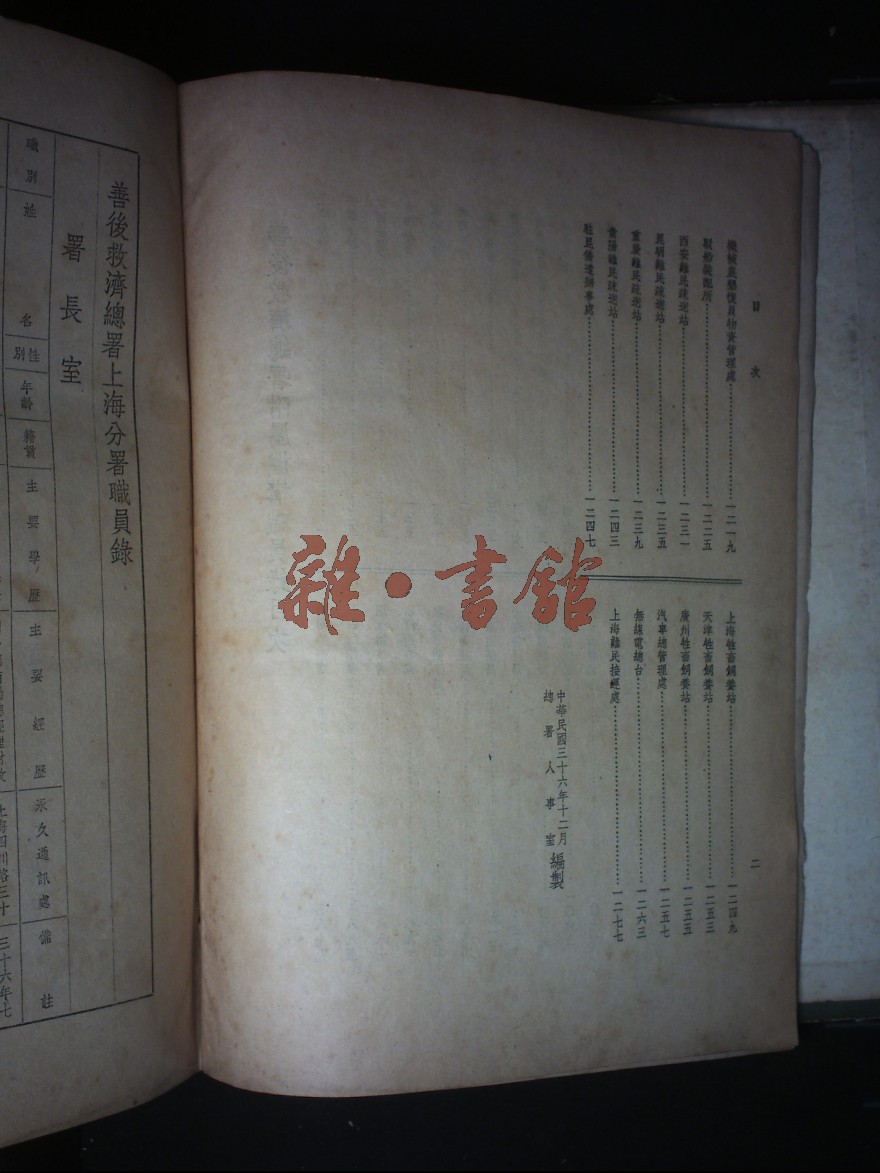 目次
二
機械農墾復員物資管理處 一二一九
駁船裝配所 一二二五
西安難民疏送站 一二三一
昆明難民疏送站 一二三五
重慶難民疏送站 一二三九
貴陽難民疏送站 一二四三
駐昆僑遣辦事處 一二四七
上海牲畜飼養站 一二四九
天津牲畜飼養站 一二五三
廣州牲畜飼養站 一二五五
汽車總管理處 一二五七
無線電總台 一二六三
上海難民接運處 一二七七
中華民國三十六年十二月
總署人事室編製
雜·書館
善後救濟總署上海分署職員錄
署長室
職別
姓名
性別
年齡
籍貫
主要學歷
主要經歷
永久通訊處
備註
上海四川路三十
三十六年七